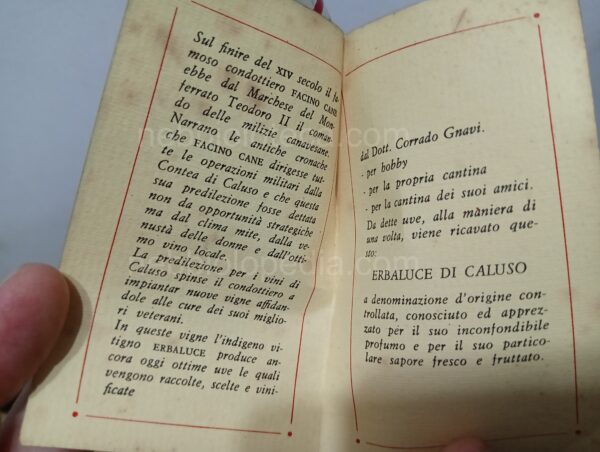 Sul finire del XIV secolo il fa-
moso condottiero FACINO CANE
ebbe dal Marchese del Mon-
ferrato Teodoro II il coman-
do delle milizie canavesane.
Narrano le antiche cronache
che FACINO CANE dirigesse tut-
te le operazioni militari dalla
Contea di Caluso e che questa
sua predilezione fosse dettata
non da opportunità strategiche
ma dal clima mite, dalla ve-
nustà delle donne e dall'otti-
mo vino locale.
La predilezione per i vini di
Caluso spinse il condottiero a
impiantar nuove vigne affidan-
dole alle cure dei suoi miglio-
ri veterani.
In queste vigne l'indigeno vi-
tigno ERBALUCE produce an-
cora oggi ottime uve le quali
vengono raccolte, scelte e vini-
ficate
dal Dott. Corrado Gnavi.
- per hobby
- per la propria cantina
- per la cantina dei suoi amici.
Da dette uve, alla maniera di
una volta, viene ricavato que-
so:
ERBALUCE DI CALUSO
a denominazione d'origine con-
trollata, conosciuto ed apprez-
zato per il suo inconfondibile
profumo e per il suo partico-
lare sapore fresco e fruttato.